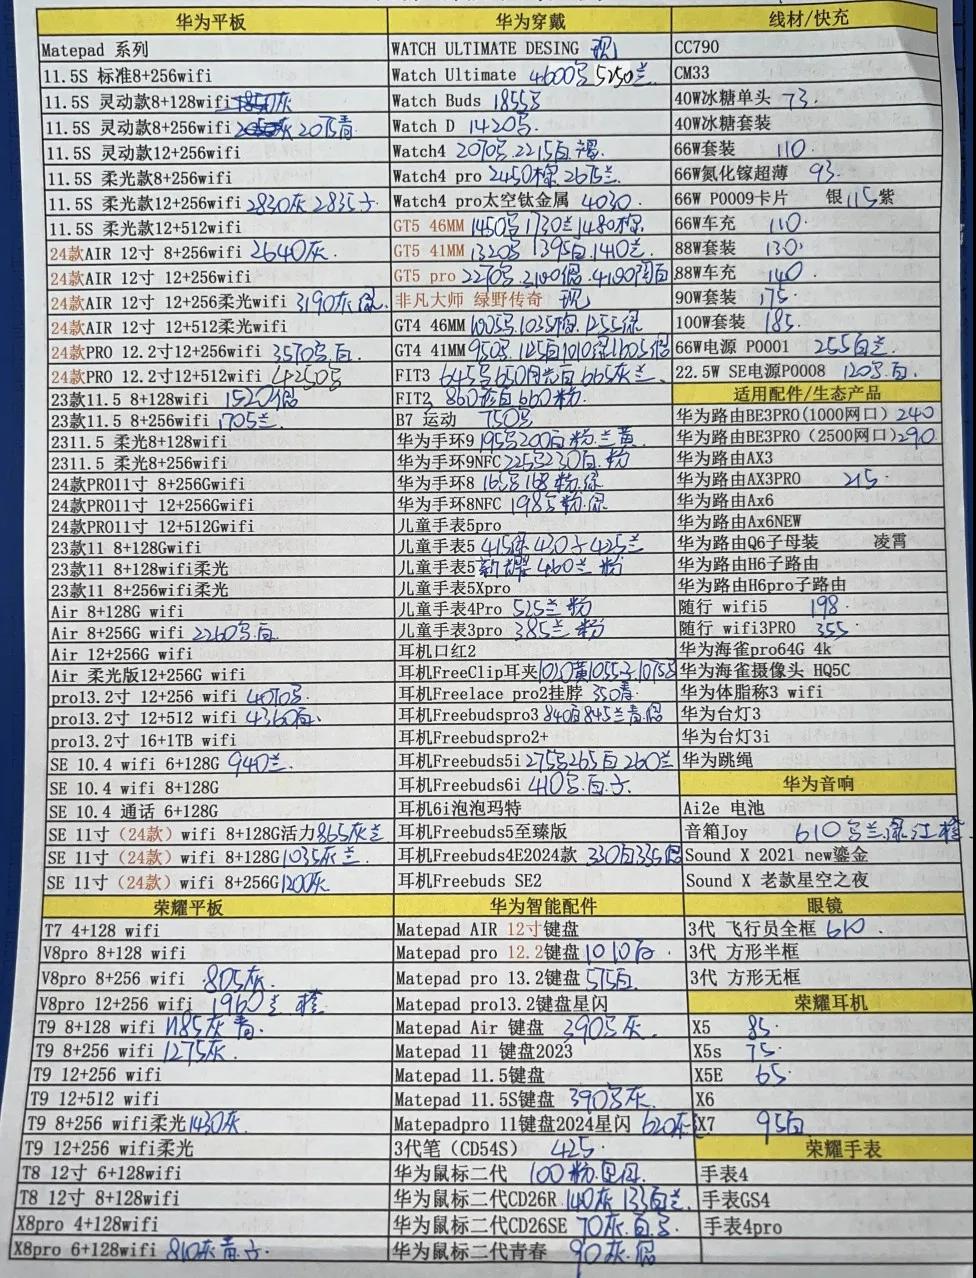 华为平板
Matepad 系列
11.5S 标准8+256wifi
11.5S 灵动款8+128wifi
11.5S 灵动款8+256wifi 2075青
11.5S 灵动款12+256wifi
11.5S 柔光款8+256wifi
11.5S 柔光款12+256wifi 2830灰 2835
11.5S 柔光款12+512wifi
24款AIR 12寸 8+256wifi 2640灰.
24款AIR 12寸 12+256wifi
24款AIR 12寸 12+256柔光wifi 3190灰
24款AIR 12寸 12+512柔光wifi
24款PRO 12.2寸12+256wifi 3570 白
24款PRO 12.2寸12+512wifi 4250
23款11.5 8+128wifi 1520
23款11.5 8+256wifi 1705兰
2311.5 柔光8+128wifi
2311.5 柔光8+256wifi
24款PRO11寸 8+256Gwifi
24款PRO11寸 12+256Gwifi
24款PRO11寸 12+512Gwifi
23款11 8+128Gwifi
23款11 8+128wifi柔光
23款11 8+256wifi柔光
Air 8+128G wifi
Air 8+256G wifi 2260 白
Air 12+256G wifi
Air 柔光版12+256G Wifi
pro13.2寸 12+256 wifi 4070
pro13.2寸 12+512 wifi 4360白.
pro13.2寸 16+1TB wifi
SE 10.4 wifi 6+128G 940兰.
SE 10.4 wifi 8+128G
SE 10.4 通话 6+128G
SE 11寸（24款）wifi 8+128G活力865灰兰
SE 11寸（24款）wifi 8+128G1035灰兰.
SE 11寸（24款）wifi 8+256G1200灰
荣耀平板
T7 4+128 wifi
V8pro 8+128 wifi
V8pro 8+256 wifi 805灰.
V8pro 12+256 wifi 1960兰
T9 8+128 wifi 1185灰 青.
T9 8+256 wifi 1275灰.
T9 12+256 wifi
T9 12+512 wifi
T9 8+256G wifi柔光1430灰.
T9 12+256 wifi柔光
T8 12寸 6+128wifi
T8 12寸 8+128wifi
X8pro 4+128wifi
X8pro 6+128wifi 810灰青
华为穿戴
WATCH ULTIMATE DESING 现
Watch Ultimate 4600 5250兰
Watch Buds 1855
Watch D 1420
Watch4 2070 2215白
Watch4 pro 2450棕 2675兰
Watch4 pro太空钛金属 4030.
GT5 46MM 1450 1730兰1480棕
GT5 41MM 1320 1395白.1410兰.
GT5 pro 2270
非凡大师 绿野传奇 现
GT4 46MM 1005 1035棕 1255绿
GT4 41MM 950 1010绿
FIT3 645 665灰兰.
FIT2 660粉
B7 运动 750
华为手环9 195 200白粉.兰黄
华为手环9NFC 225 230白.粉
华为手环8 165 168粉.绿
华为手环8NFC 198 粉.绿
儿童手表5pro
儿童手表5 415绿 430 425兰
儿童手表5 460兰 粉
儿童手表5Xpro
儿童手表4Pro 525兰 粉
儿童手表3pro 385兰 粉
耳机口红2
耳机FreeClip耳夹1020黄1055
耳机Freelace pro2挂脖 350青.
耳机Freebudspro3 840白845兰青
耳机Freebudspro2+
耳机Freebuds5i 275 265白 260兰
耳机Freebuds6i 410 白
耳机6i泡泡玛特
耳机Freebuds5至臻版
耳机Freebuds4E2024款 330白335
耳机Freebuds SE2
华为智能配件
Matepad AIR 12寸键盘
Matepad pro 12.2键盘1010白.
Matepad pro 13.2键盘575白
Matepad pro13.2键盘星闪
Matepad Air 键盘 390 灰.
Matepad 11 键盘2023
Matepad 11.5键盘
Matepad 11.5S键盘 390 灰.
Matepadpro 11键盘2024星闪 620灰
3代笔（CD54S） 425.
华为鼠标二代 100粉.
华为鼠标二代CD26R 140灰 135白兰.
华为鼠标二代CD26SE 70灰.白
华为鼠标二代青春 90灰.
线材/快充
CC790
CM33
40W冰糖单头 73.
40W冰糖套装
66W套装 110
66W氮化镓超薄 93.
66W P0009卡片 银115紫
66W车充 110.
88W套装 130
88W车充 140
90W套装 175.
100W套装 185.
66W电源 P0001 255白兰
22.5W SE电源P0008 120 白.
适用配件/生态产品
华为路由BE3PRO(1000网口) 240
华为路由BE3PRO (2500网口)290
华为路由AX3
华为路由AX3PRO 215.
华为路由Ax6
华为路由Ax6NEW
华为路由Q6子母装 凌霄
华为路由H6子路由
华为路由H6pro子路由
随行 wifi5 198.
随行 wifi3PRO 355
华为海雀pro64G 4k
华为海雀摄像头 HQ5C
华为体脂称3 wifi
华为台灯3
华为台灯3i
华为跳绳
华为音响
Ai2e 电池
音箱Joy 610 兰
Sound X 2021 new鎏金
Sound X 老款星空之夜
眼镜
3代 飞行员全框 610.
3代 方形半框
3代 方形无框
荣耀耳机
X5 85.
X5s 75.
X5E 65.
X6
X7 95白
荣耀手表
手表4
手表GS4
手表4pro